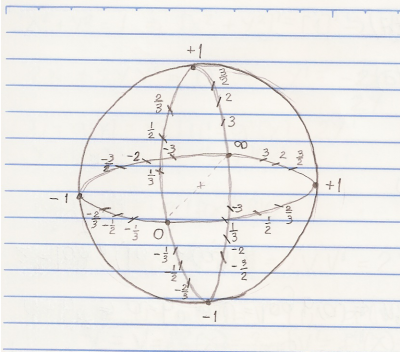 +1
3/2
2/3
2
1/2
3
-3
∞
-3/2
-2
3
2
3/2
1/3
-1
+
+1
-2/3
-1/2
-1/3
0
-3
1/3
1/2
2/3
-1/3
-2
-1/2
-3/2
-2/3
-1